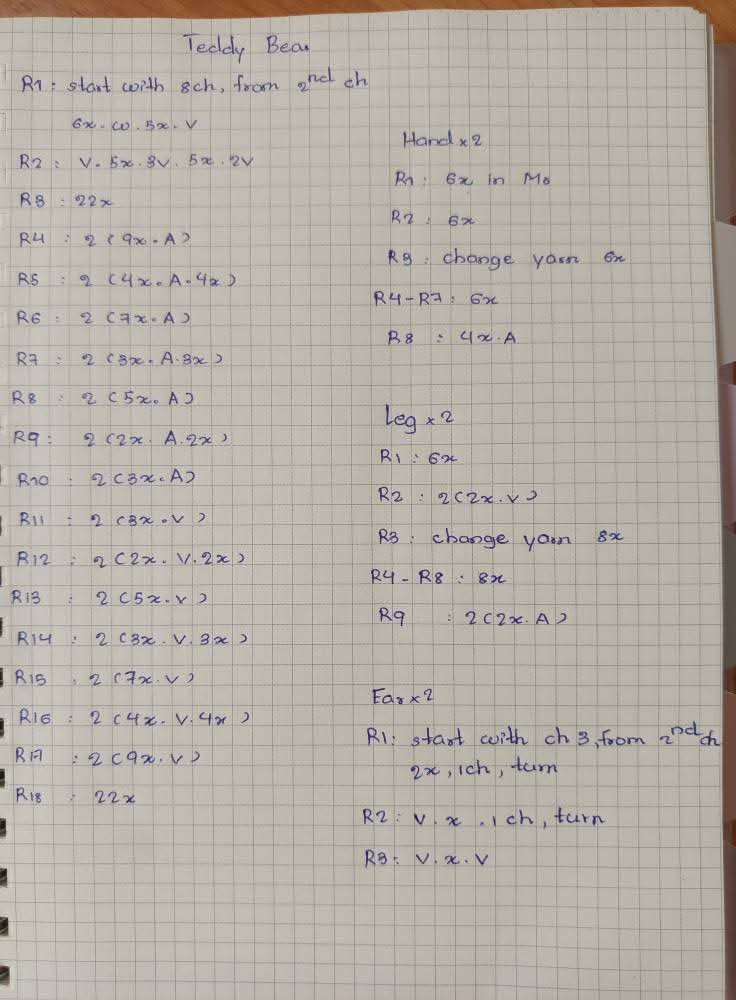 Teddy Bear
R1: start with 8ch, from 2nd ch
6x. w. 5x. V
R2: V. 5x. 3V. 5x. 2V
R3: 22x
R4: 2(9x. A)
R5: 2(4x. A. 4x)
R6: 2(7x. A)
R7: 2(3x. A. 3x)
R8: 2(5x. A)
R9: 2(2x. A. 2x)
R10: 2(3x. A)
R11: 2(3x. V)
R12: 2(2x. V. 2x)
R13: 2(5x. V)
R14: 2(3x. V. 3x)
R15: 2(7x. V)
R16: 2(4x. V. 4x)
R17: 2(9x. V)
R18: 22x
Hand x2
R1: 6x in Mo
R2: 6x
R3: change yarn 6x
R4-R7: 6x
R8: 4x. A
Leg x2
R1: 6x
R2: 2(2x. V)
R3: change yarn 8x
R4-R8: 8x
R9: 2(2x. A)
Ear x2
R1: start with ch 3, from 2nd ch
2x, 1ch, turn
R2: V. x. 1ch, turn
R3: V. x. V